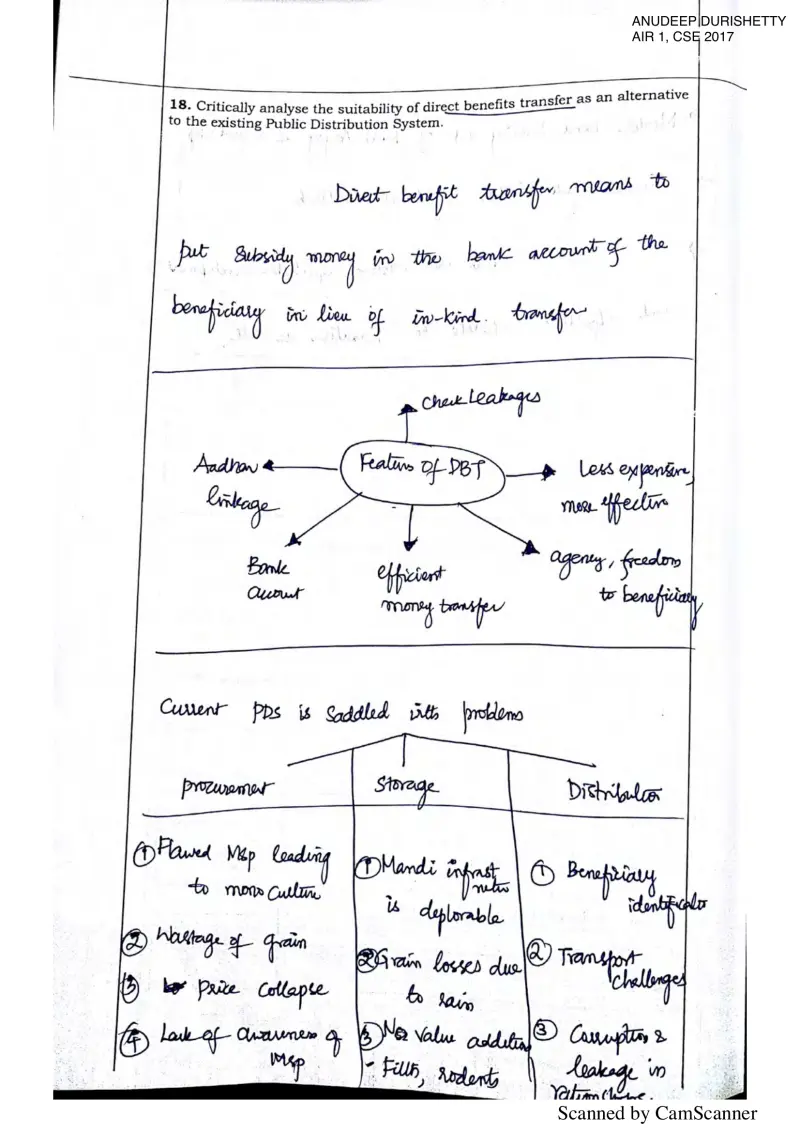 ANUDEEP DURISHETTY
AIR 1, CSE 2017
18. Critically analyse the suitability of direct benefits transfer as an alternative
to the existing Public Distribution System.
Direct benefit transfer means to
put subsidy money in the bank account of the
beneficiary in lieu of in-kind. transfer
Check Leakages
Features of DBT
Aadhar
linkage
Less expensive,
more effective
Bank
account
efficient
money transfer
agency, freedom
to beneficiary
Current PDS is saddled with problems
procurement
Storage
Distribution
① Flawed MSP leading
to mono culture
② Wastage of grain
③ Price collapse
④ Lack of awareness of
MSP
① Mandi infrast
ructure
is deplorable
② Grain losses due
to rain
③ No value addition
- Filth, rodents
① Beneficiary
identification
② Transport
challenges
③ Corruption &
leakage in
Scanned by CamScanner